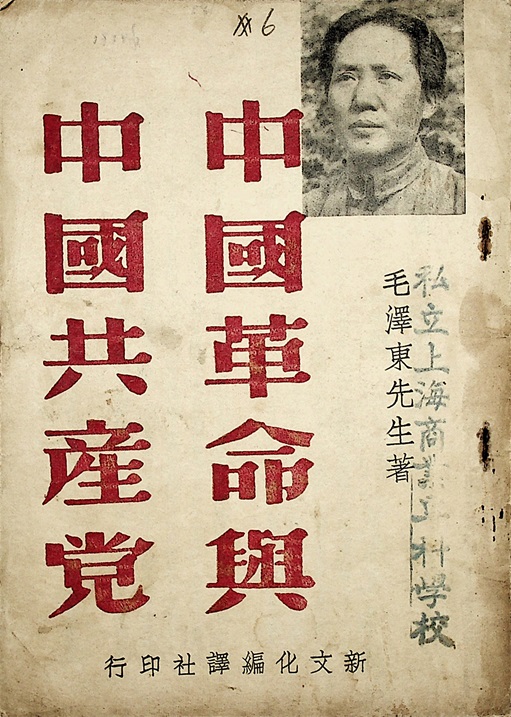 私立上海商業工科学校
毛澤東先生著
中國革命與
中國共産党
新文化編譯社印行